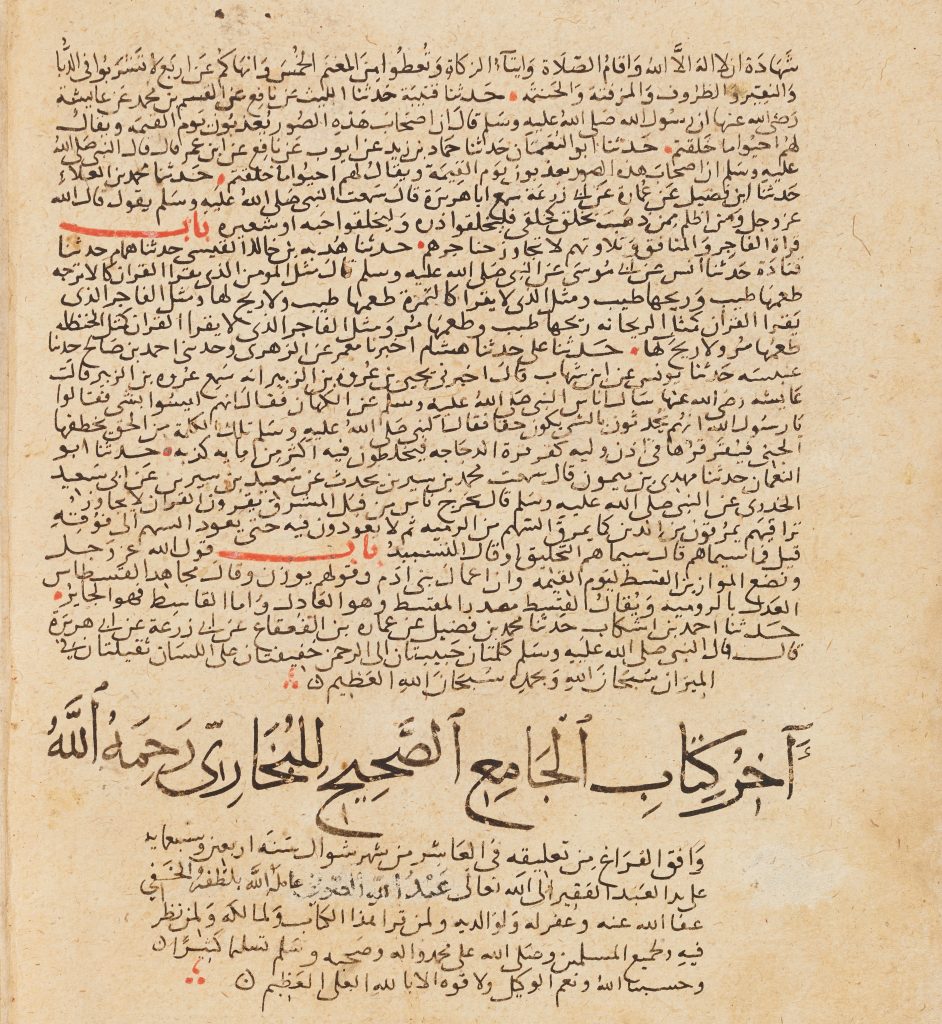 شهادة ان لا اله الا الله واقام الصلاة وايتاء الزكاة وتعطوا من المغنم الخمس وانهاكم عن اربع لا تشربوا فى الدبا
والنقير والظروف والمزفتة والحنتمه حدثنا قتيبة حدثنا الليث عن نافع عن القسم بن محمد عن عايشة
رضى الله عنها ان رسول الله صلى الله عليه وسلم قال ان اصحاب هذه الصور يعذبون يوم القيمه ويقال
لهم احيوا ما خلقتم حدثنا ابو النعمان حدثنا حماد بن زيد عن ايوب عن نافع عن ابن عمر قال قال النبى صلى الله
عليه وسلم ان اصحاب هذه الصور يعذبون يوم القيمة ويقال لهم احيوا ما خلقتم حدثنا محمد بن العلاء
حدثنا ابن فضيل عن عمارة عن ابى زرعة سمع ابا هريرة قال سمعت النبى صلى الله عليه وسلم يقول قال الله
عز وجل ومن اظلم ممن ذهب يخلق كخلقى فليخلقوا ذره وليخلقوا حبه او شعيره باب
قراة الفاجر والمنافق وتلاوتهم لا تجاوز حناجرهم حدثنا هدبه بن خالد القيسى حدثنا همام حدثنا
قتادة حدثنا انس عن ابى موسى عن النبى صلى الله عليه وسلم قال مثل المومن الذى يقرا القران كالاترجه
طعمها طيب وريحها طيب ومثل الذى لا يقرا كالتمرة طعمها طيب ولا ريح لها ومثل الفاجر الذى
يقرا القران كمثل الريحانه ريحها طيب وطعمها مر ومثل الفاجر الذى لا يقرا القران كمثل الحنظله
طعمها مر ولا ريح لها حدثنا على حدثنا هشام اخبرنا معمر عن الزهرى وحدثنى احمد بن صالح حدثنا
عنبسه حدثنا يونس عن ابن شهاب قال اخبرنى يحيى بن عروه بن الزبير انه سمع عروه بن الزبير قالت
عايشه رضى الله عنها سال اناس النبى صلى الله عليه وسلم عن الكهان فقال انهم ليسوا بشى فقالوا
يا رسول الله انهم يحدثون بالشى يكون حقا فقال النبى صلى الله عليه وسلم تلك الكلمة من الحق يخطفها
الجنى فيقرقرها فى اذن وليه كقرقرة الدجاجه فيخلطون فيه اكثر من مايه كذبه حدثنا ابو
النعمان حدثنا مهدى بن ميمون قال سمعت محمد بن سيرين يحدث عن معبد بن سيرين عن ابى سعيد
الخدرى عن النبى صلى الله عليه وسلم قال يخرج ناس من قبل المشرق يقرون القران لا يجاوز
تراقيهم يمرقون من الدين كما يمرق السهم من الرميه ثم لا يعودون فيه حتى يعود السهم الى فوقه
قيل ما سيماهم قال سيماهم التحليق او قال التسبيد باب قول الله عز وجل
ونضع الموازين القسط ليوم القيمه وان اعمال بنى ادم وقولهم يوزن وقال مجاهد القسطاس
العدل بالروميه ويقال القسط مصدر المقسط وهو العادل واما القاسط فهو الجاير
حدثنا احمد بن اشكاب حدثنا محمد بن فضيل عن عماره بن القعقاع عن ابى زرعة عن ابى هريرة
قال قال النبى صلى الله عليه وسلم كلمتان حبيبتان الى الرحمن خفيفتان على اللسان ثقيلتان فى
الميزان سبحان الله وبحمده سبحان الله العظيم
آخر كتاب الجامع الصحيح للبخارى رحمه الله
وافق الفراغ من تعليقه فى العاشر من شهر شوال سنه اربعين وسبعمايه
على يد العبد الفقير الى الله تعالى عامله الله بلطفه الخفى
عفا الله عنه وغفر له ولوالديه ولمن قرا هذا الكتاب ولمالكه ولمن نظر
فيه ولجميع المسلمين وصلى الله على محمد واله وصحبه وسلم تسليما كثيرا
وحسبنا الله ونعم الوكيل ولا قوه الا بالله العلى العظيم